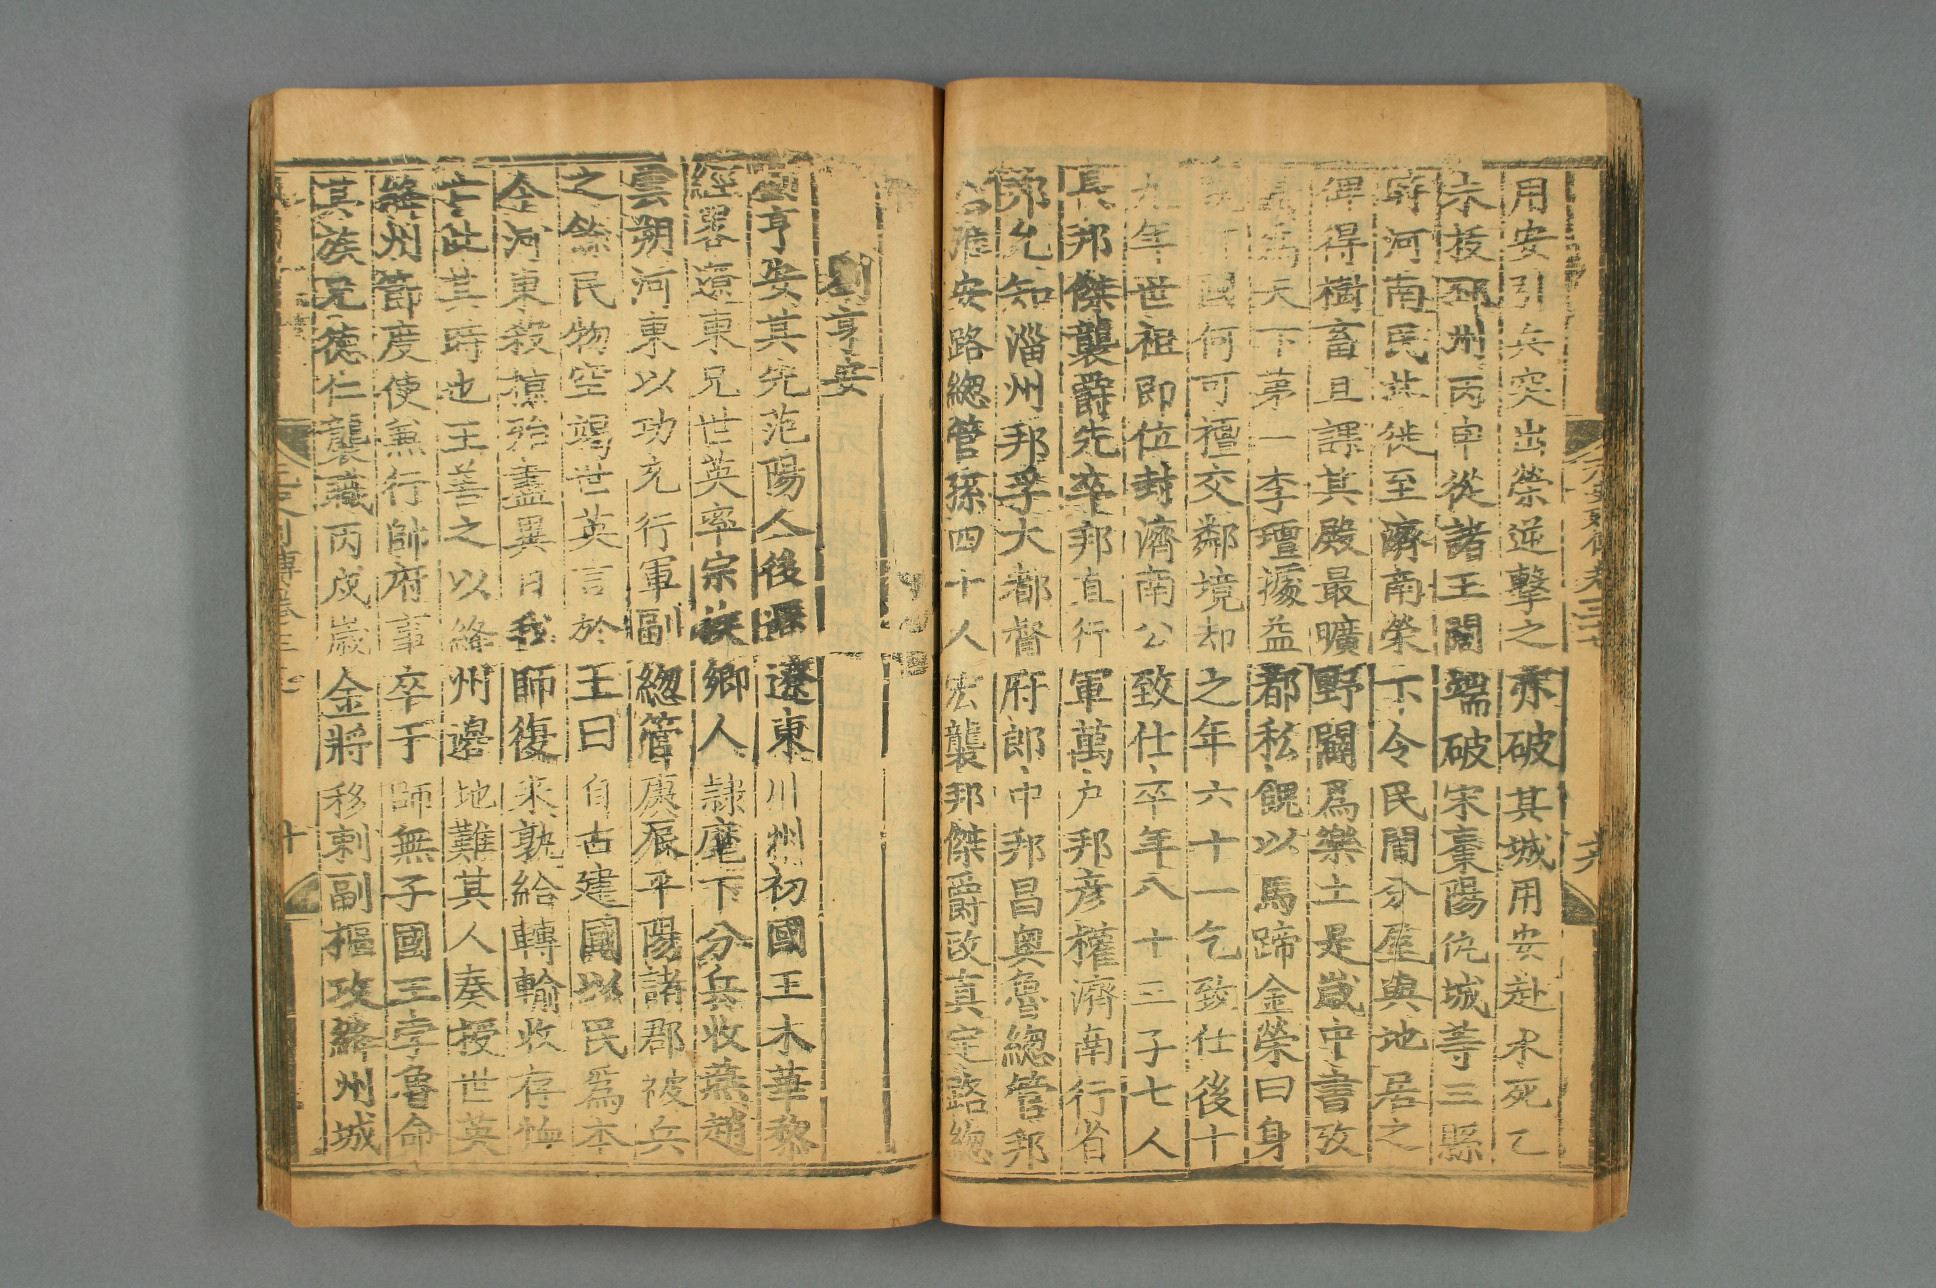 用安引兵突出榮逆擊之亦破其城用安赴水死乙
未拔邳州丙申從諸王闊端破宋棗陽仇城等三縣
府河南民共徙至濟南榮下令民間分屋與地居之
俾得樹畜且課其殿最曠野闢爲樂土是歲中書攷
爲天下第一李璮據益都私餽以馬蹄金榮曰身
國何可擅交鄰境却之年六十一乞致仕後十
九年世祖即位封濟南公致仕卒年八十三子七人
長邦傑襲爵先卒邦直行軍萬户邦彥權濟南行省
邦允知淄州邦孚大都督府郎中邦昌奥魯總管邦
安路總管孫四十人宏襲邦傑爵改真定路總
劉亨安
劉亨安其先范陽人後遷遼東川州初國王木華黎
經畧遼東兄世英率宗族鄉人隷麾下分兵收燕趙
雲朔河東以功充行軍副總管庚辰平陽諸郡被兵
之餘民物空竭世英言於王曰自古建國以民爲本
今河東殺掠殆盡異日我師復來孰給轉輸收存恤
亡此其時也王善之以絳州邊地難其人奏授世英
絳州節度使兼行帥府事卒于師無子國王孛魯命
其族兄德仁襲職丙戌歲金將移剌副樞攻絳州城
元史列傳卷三十七
十